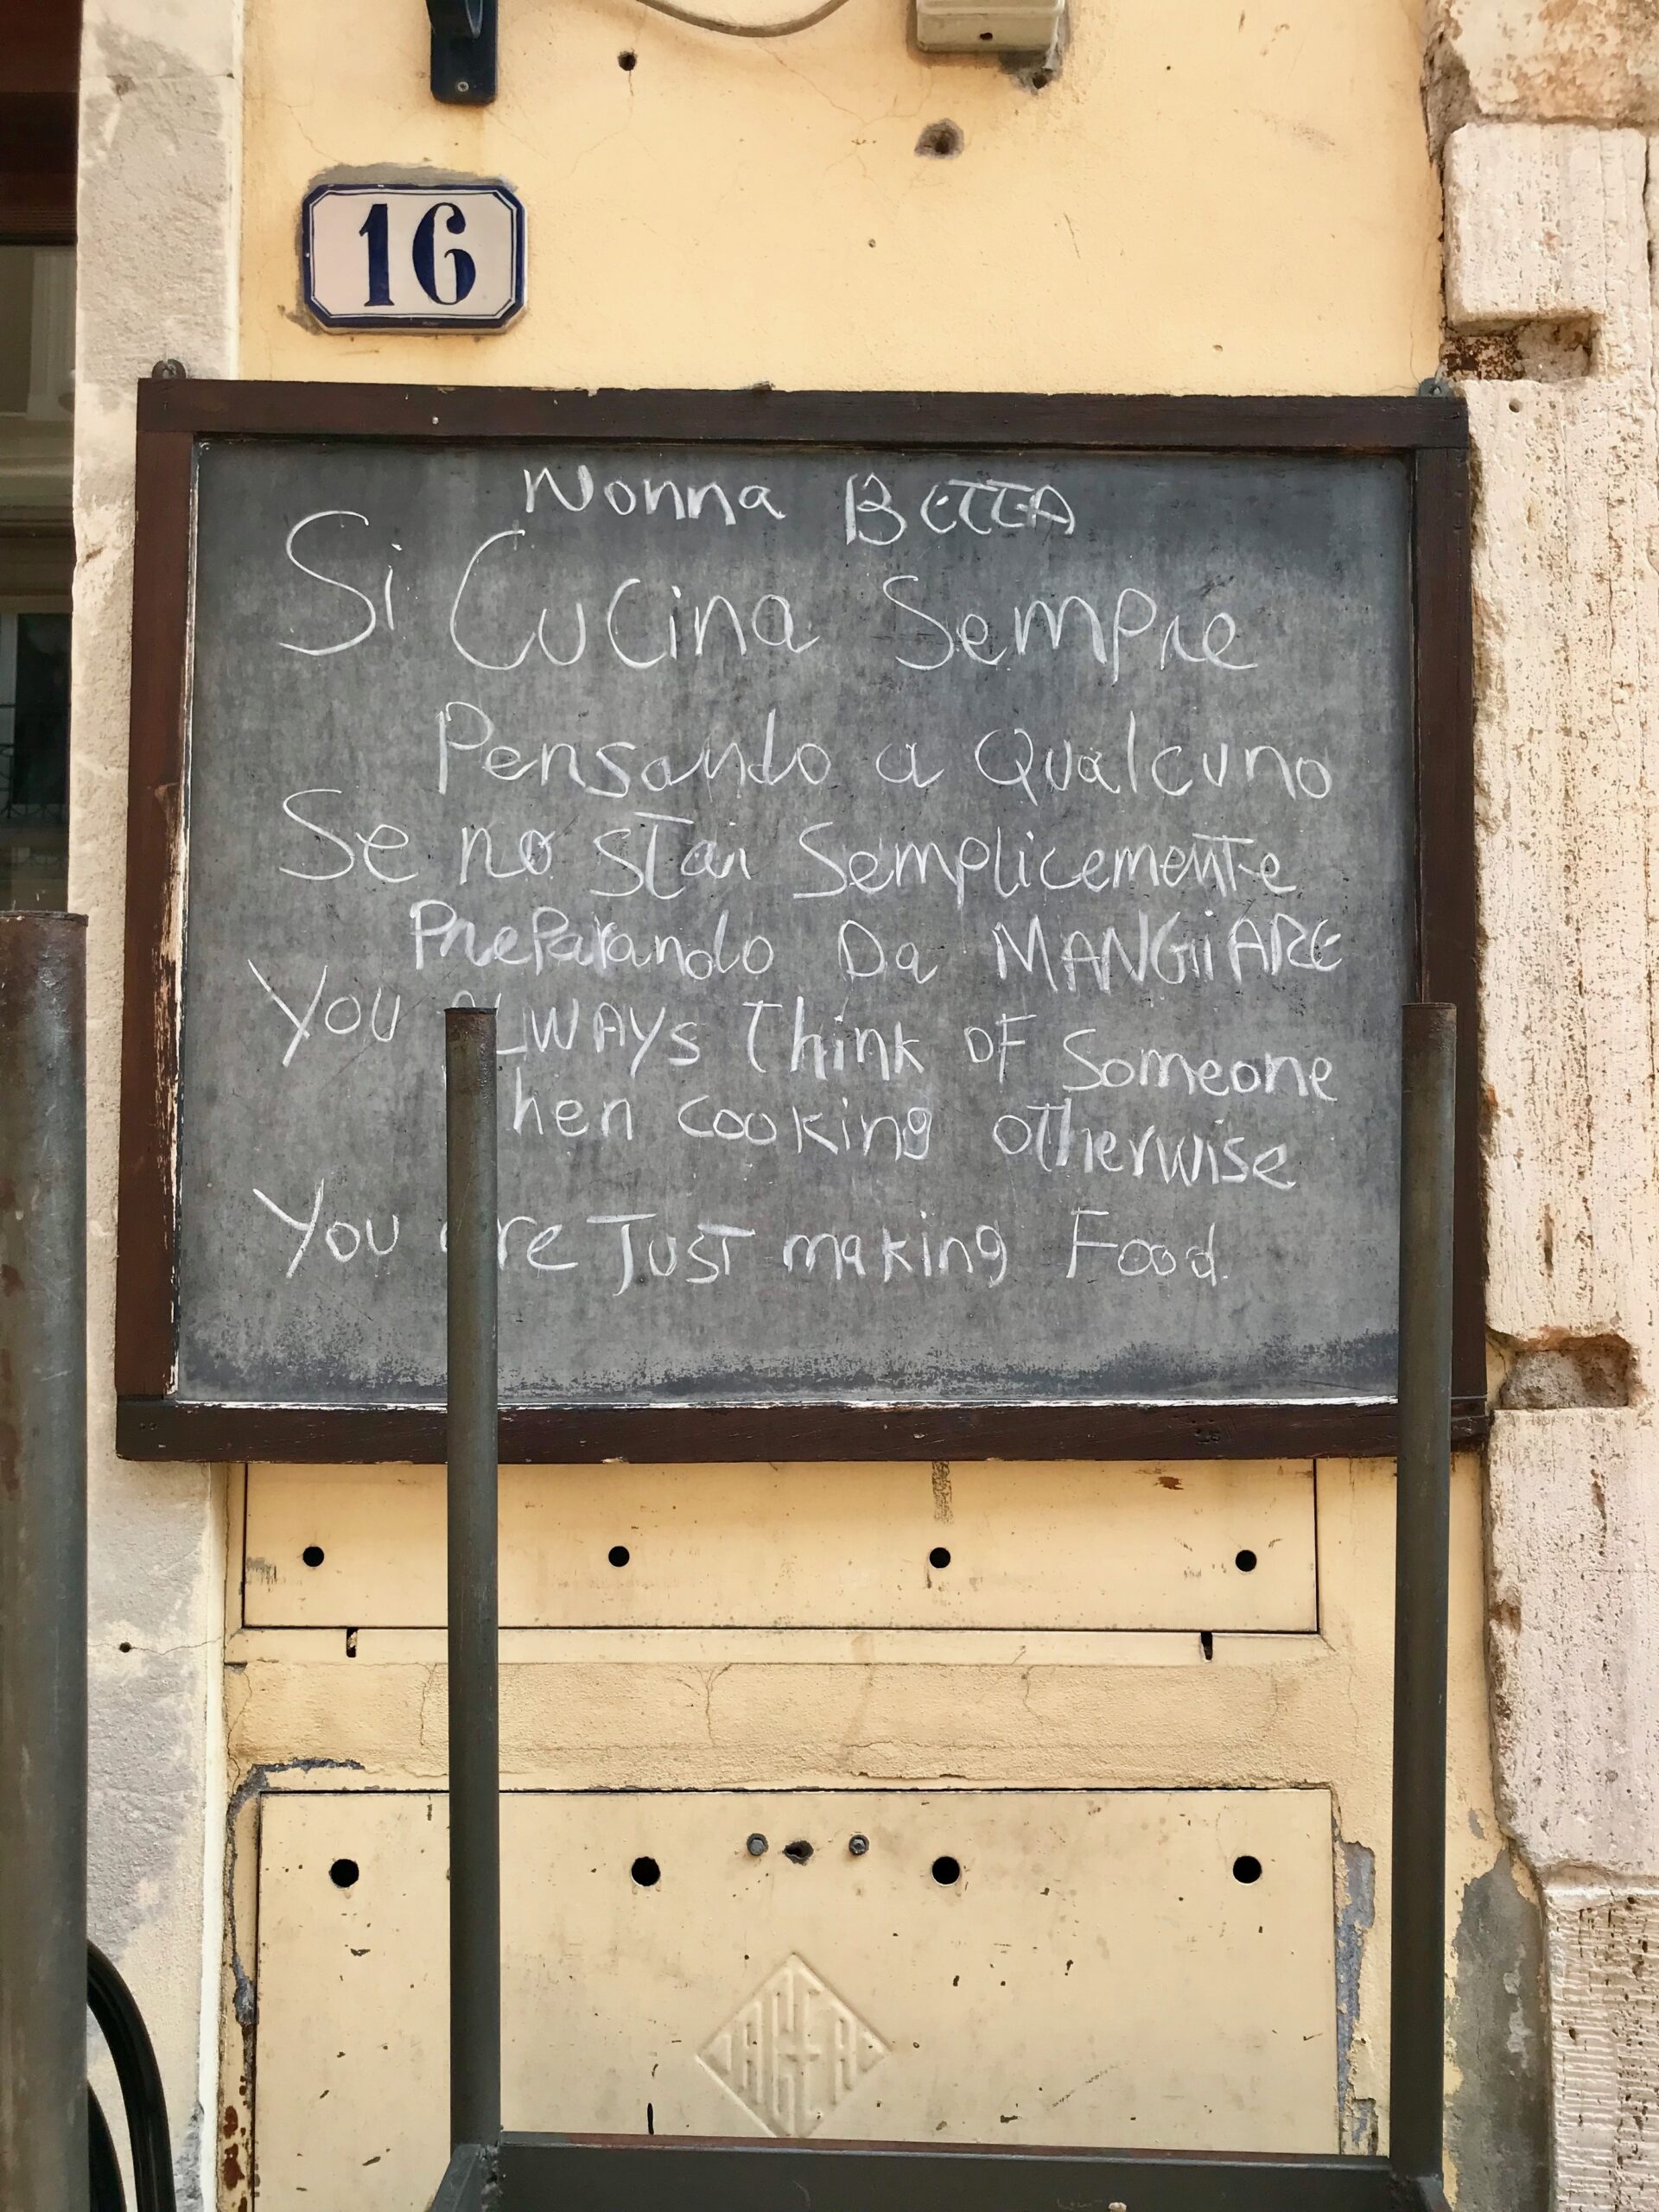 16
Nonna BETTA
Si Cucina Sempre
Pensando a Qualcuno
Se no stai Semplicemente
PrePerando Da MANGiARE
You ALWAYS Think OF Someone
hen cooking otherwise
You are JusT making Food.
ACEA